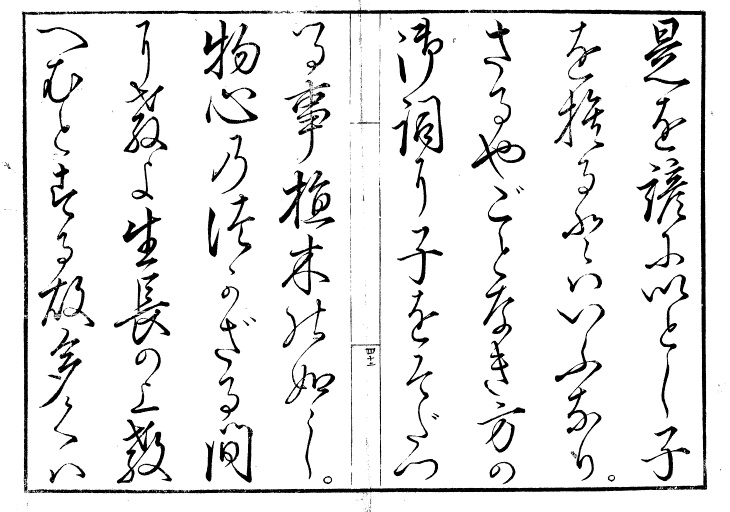 是を諺にいとし子
を捨るとはいふなり。
さるやごとなき方の
御詞に子をそだつ
る事植木の如し。
物心の付かざる間
に教よ生長の上教
へむとする故多くは
四十二